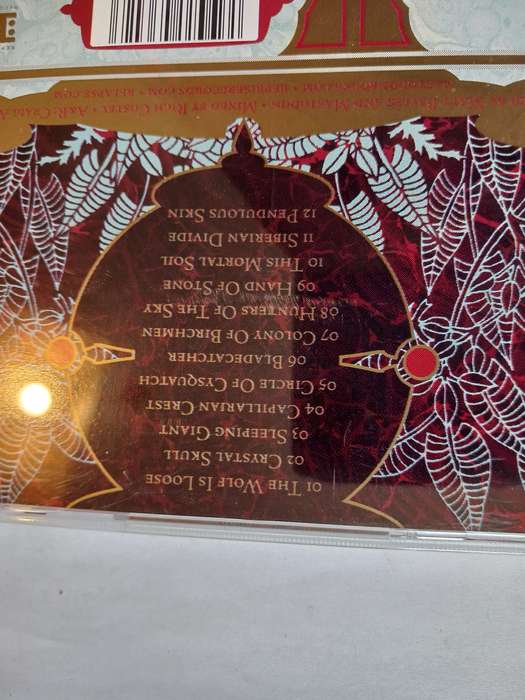 01 The Wolf Is Loose
02 Crystal Skull
03 Sleeping Giant
04 Capillarian Crest
05 Circle Of Cysquatch
06 Bladecatcher
07 Colony Of Birchmen
08 Hunters Of The Sky
09 Hand Of Stone
10 This Mortal Soil
11 Siberian Divide
12 Pendulous Skin
And Mastodon • Mixed by Rich Costey • A&R: Craig A
repriserecords.com • relapse.com